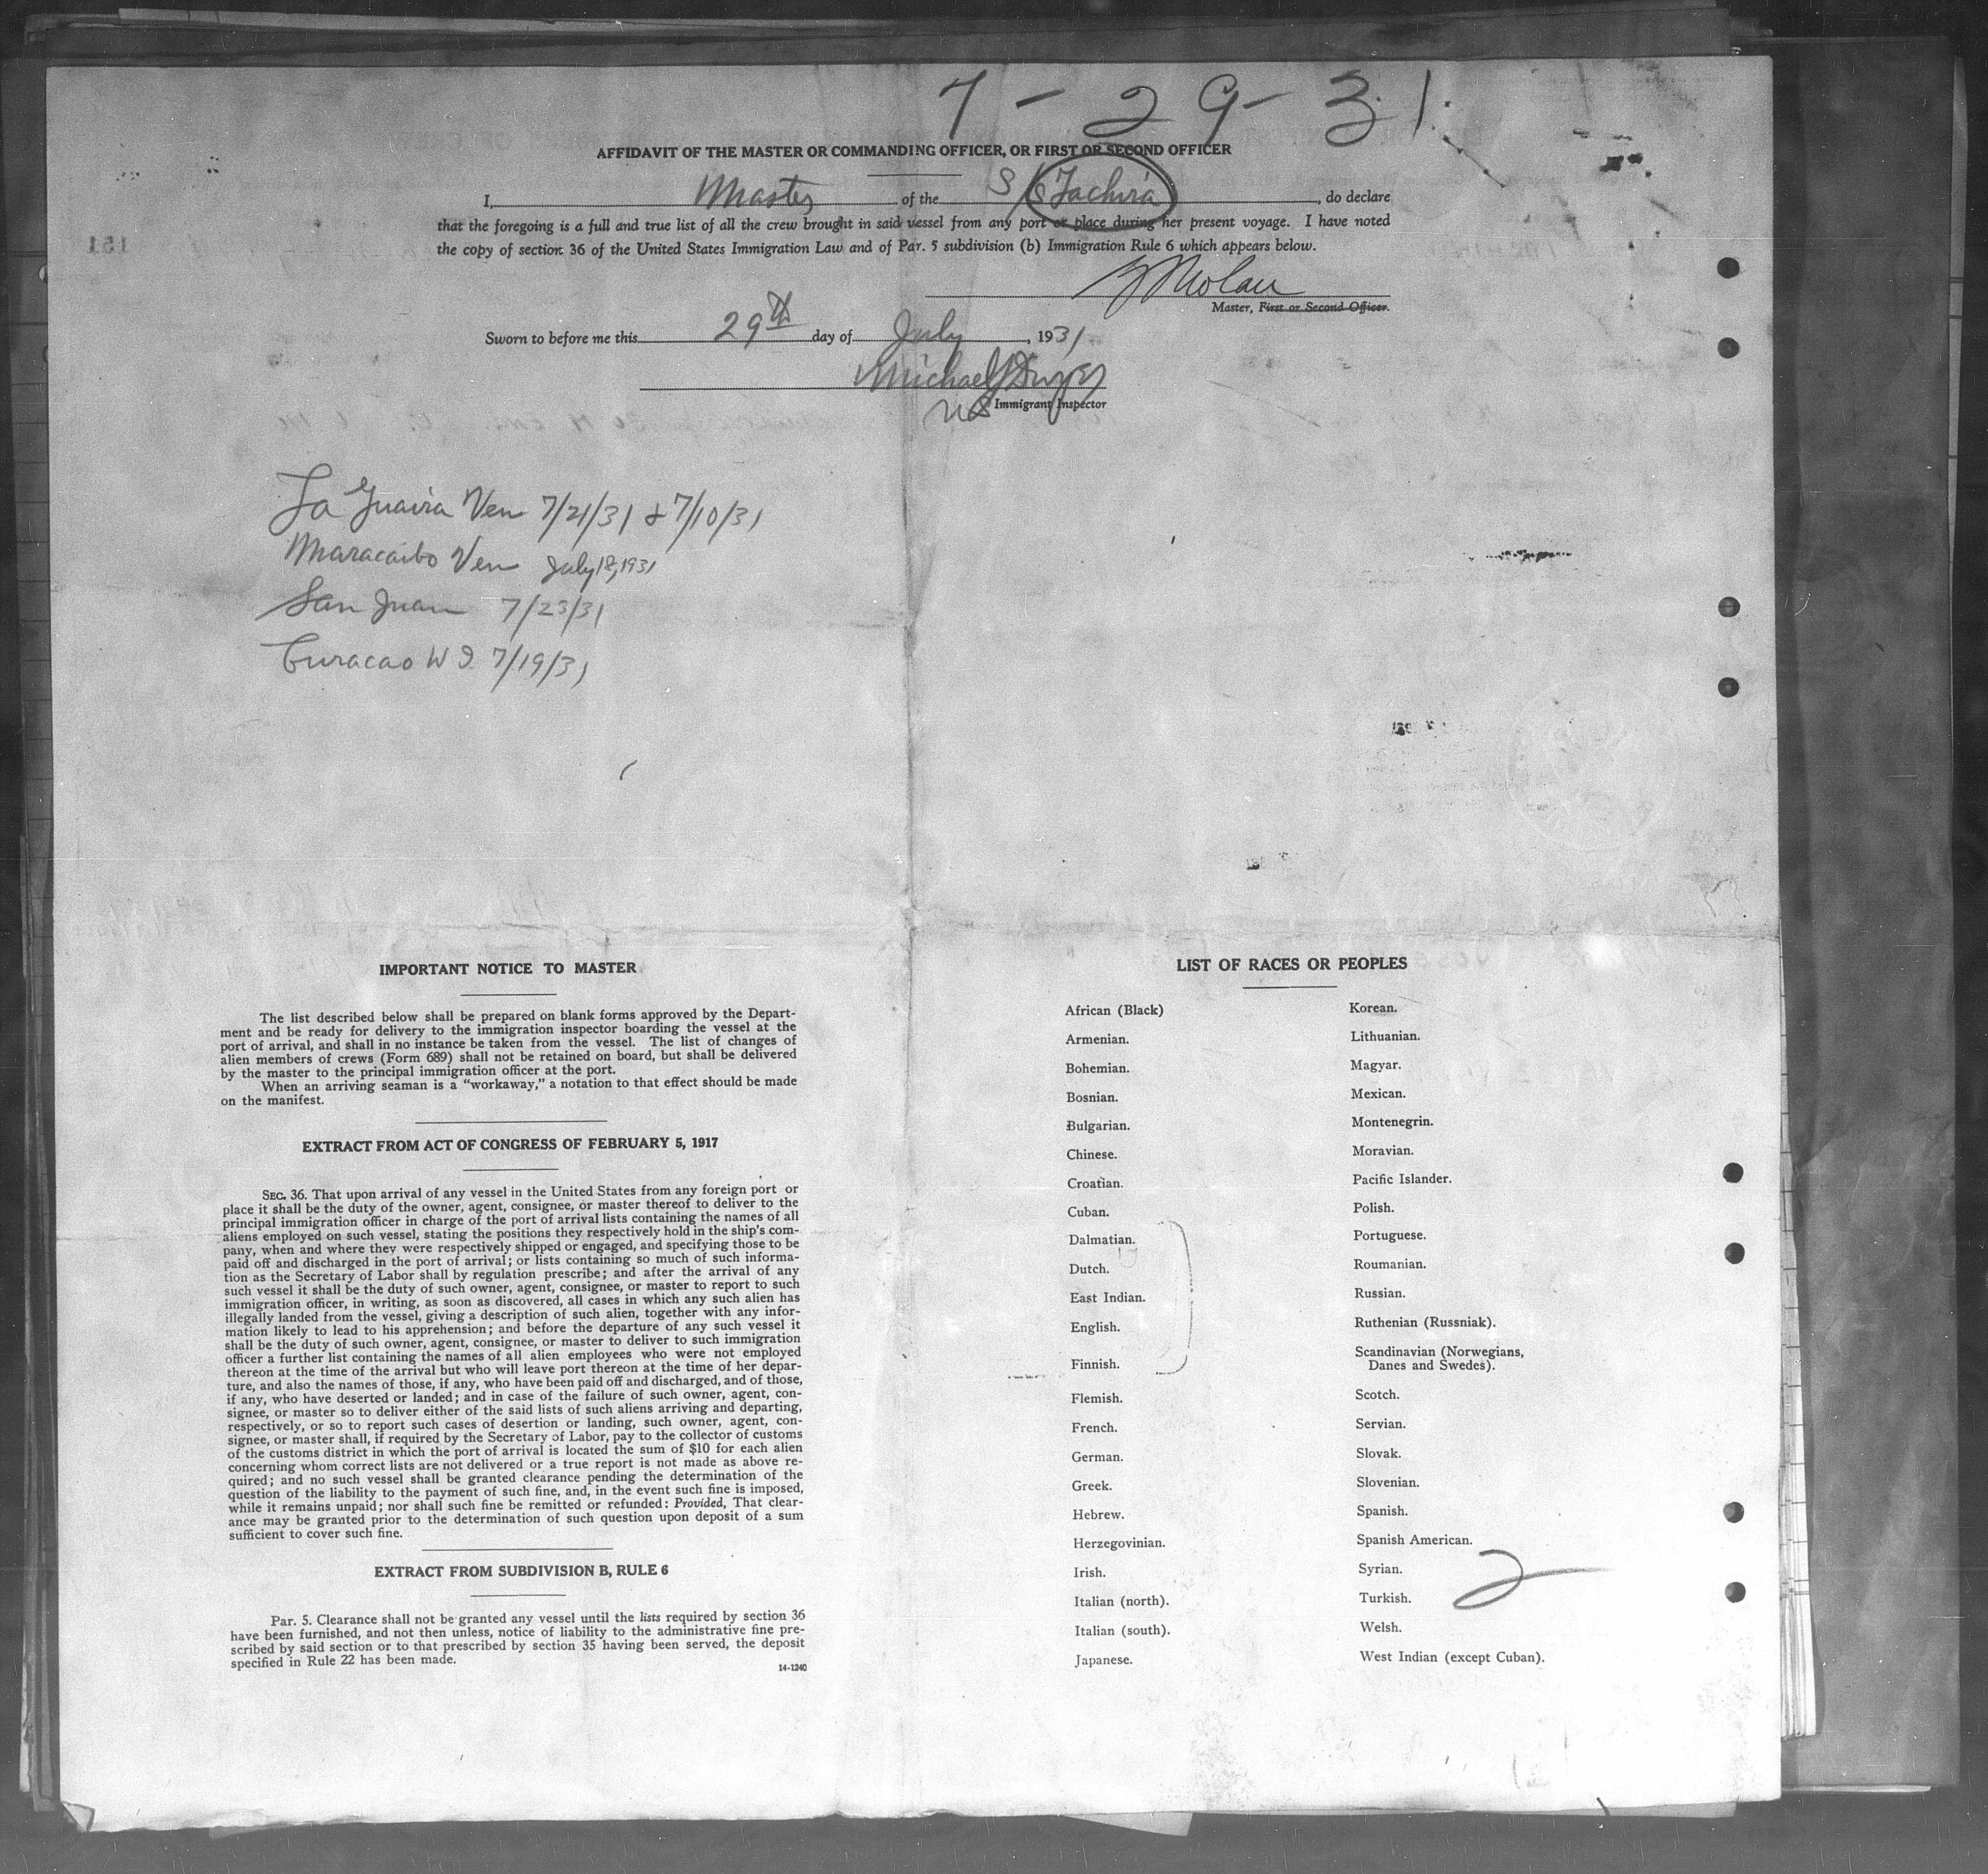 7-29-31.
AFFIDAVIT OF THE MASTER OR COMMANDING OFFICER, OR FIRST OR SECOND OFFICER
I, Master of the S/S Tachira, do declare
that the foregoing is a full and true list of all the crew brought in said vessel from any port or place during her present voyage. I have noted
the copy of section 36 of the United States Immigration Law and of Par. 5 subdivision (b) Immigration Rule 6 which appears below.
Master, First or Second Officer.
Sworn to before me this 29th day of July, 1931
Michael
US Immigrant Inspector
La Guaira Ven 7/21/31 & 7/10/31
Maracaibo Ven July 18, 1931
San Juan 7/23/31
Curacao W I. 7/19/31
IMPORTANT NOTICE TO MASTER
The list described below shall be prepared on blank forms approved by the Depart-
ment and be ready for delivery to the immigration inspector boarding the vessel at the
port of arrival, and shall in no instance be taken from the vessel. The list of changes of
alien members of crews (Form 689) shall not be retained on board, but shall be delivered
by the master to the principal immigration officer at the port.
When an arriving seaman is a "workaway," a notation to that effect should be made
on the manifest.
EXTRACT FROM ACT OF CONGRESS OF FEBRUARY 5, 1917
SEC. 36. That upon arrival of any vessel in the United States from any foreign port or
place it shall be the duty of the owner, agent, consignee, or master thereof to deliver to the
principal immigration officer in charge of the port of arrival lists containing the names of all
aliens employed on such vessel, stating the positions they respectively hold in the ship's com-
pany, when and where they were respectively shipped or engaged, and specifying those to be
paid off and discharged in the port of arrival; or lists containing so much of such informa-
tion as the Secretary of Labor shall by regulation prescribe; and after the arrival of any
such vessel it shall be the duty of such owner, agent, consignee, or master to report to such
immigration officer, in writing, as soon as discovered, all cases in which any such alien has
illegally landed from the vessel, giving a description of such alien, together with any infor-
mation likely to lead to his apprehension; and before the departure of any such vessel it
shall be the duty of such owner, agent, consignee, or master to deliver to such immigration
officer a further list containing the names of all alien employees who were not employed
thereon at the time of the arrival but who will leave port thereon at the time of her depar-
ture, and also the names of those, if any, who have been paid off and discharged, and of those,
if any, who have deserted or landed; and in case of the failure of such owner, agent, con-
signee, or master so to deliver either of the said lists of such aliens arriving and departing,
respectively, or so to report such cases of desertion or landing, such owner, agent, con-
signee, or master shall, if required by the Secretary of Labor, pay to the collector of customs
of the customs district in which the port of arrival is located the sum of $10 for each alien
concerning whom correct lists are not delivered or a true report is not made as above re-
quired; and no such vessel shall be granted clearance pending the determination of the
question of the liability to the payment of such fine, and, in the event such fine is imposed,
while it remains unpaid; nor shall such fine be remitted or refunded: Provided, That clear-
ance may be granted prior to the determination of such question upon deposit of a sum
sufficient to cover such fine.
EXTRACT FROM SUBDIVISION B, RULE 6
Par. 5. Clearance shall not be granted any vessel until the lists required by section 36
have been furnished, and not then unless, notice of liability to the administrative fine pre-
scribed by said section or to that prescribed by section 35 having been served, the deposit
specified in Rule 22 has been made.
14-1240
LIST OF RACES OR PEOPLES
African (Black)
Armenian.
Bohemian.
Bosnian.
Bulgarian.
Chinese.
Croatian.
Cuban.
Dalmatian.
Dutch.
East Indian.
English.
Finnish.
Flemish.
French.
German.
Greek.
Hebrew.
Herzegovinian.
Irish.
Italian (north).
Italian (south).
Japanese.
Korean.
Lithuanian.
Magyar.
Mexican.
Montenegrin.
Moravian.
Pacific Islander.
Polish.
Portuguese.
Roumanian.
Russian.
Ruthenian (Russniak).
Scandinavian (Norwegians,
Danes and Swedes).
Scotch.
Servian.
Slovak.
Slovenian.
Spanish.
Spanish American.
Syrian.
Turkish.
Welsh.
West Indian (except Cuban).
2